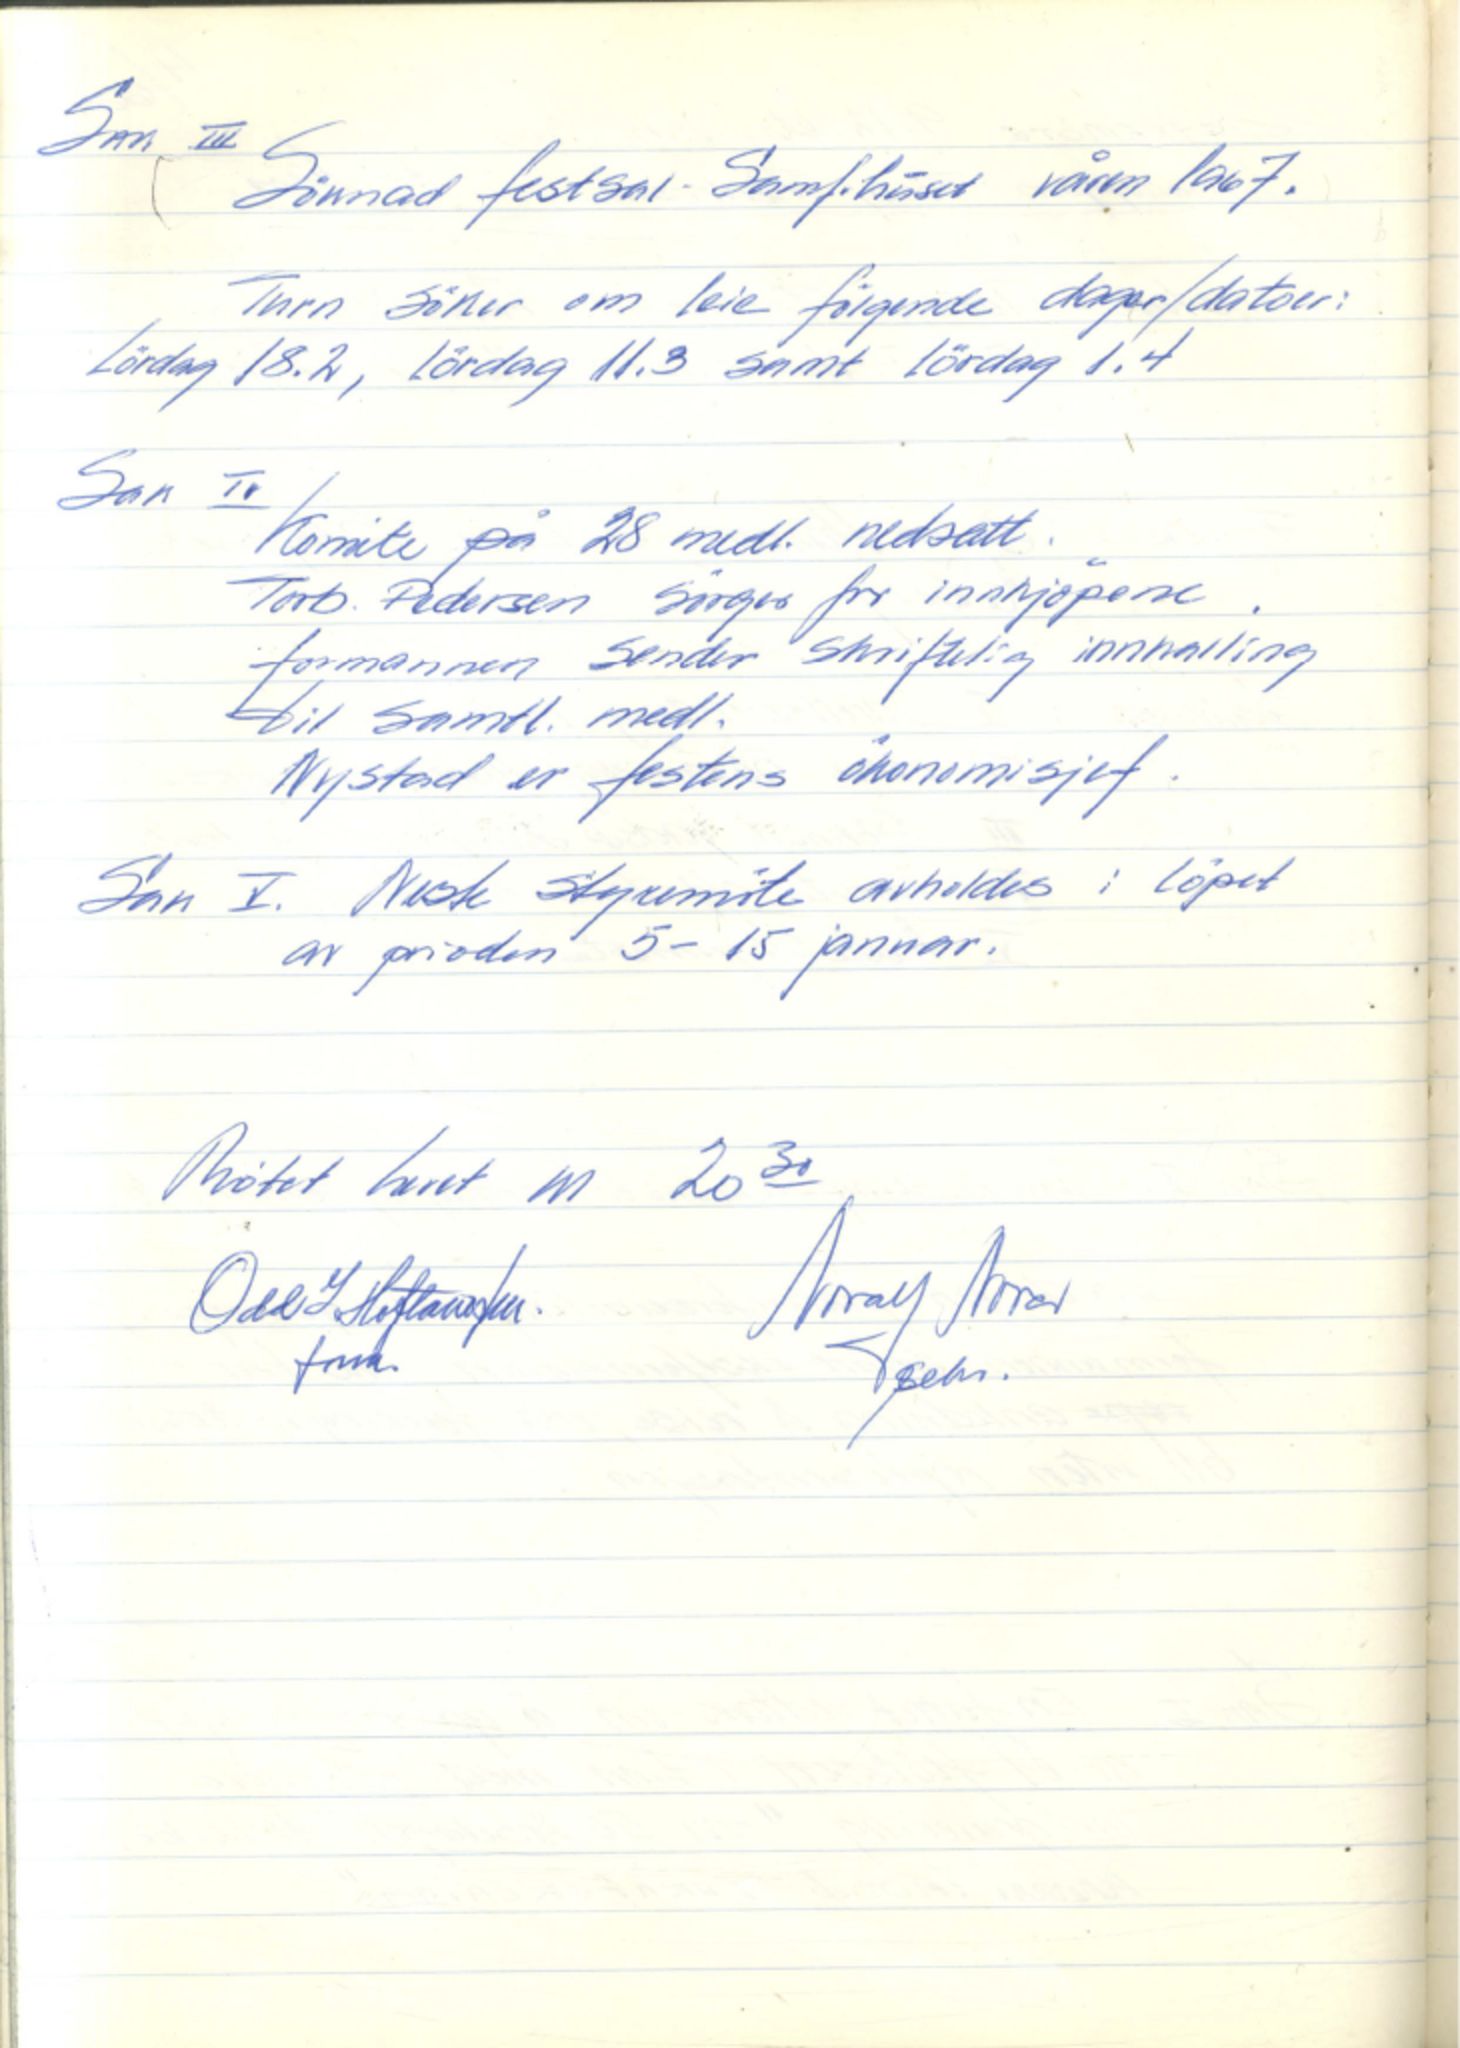 Sak III
Söknad festsal - Samf.huset våren 1967.
Turn söker om leie følgende dager/datoer:
Lördag 18.2, lördag 11.3 samt lördag 1.4
Sak IV
Komite på 28 medl. nedsatt.
Torb. Pedersen sörger for innkjöpene.
formannen sender skriftelig innkalling
til samtl. medl.
Nystad er festens ökonomisjef.
Sak V. Neste styremöte avholdes i löpet
av perioden 5-15 januar.
Mötet hevet kl 20 30
Odd
form.
sekr.